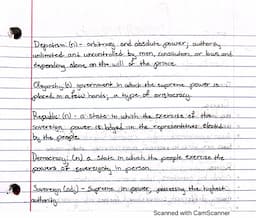 Despotism (n) - arbitrary and absolute power; authority
unlimited and uncontrolled by men, constitution, or laws and
depending alone on the will of the prince.
Oligarchy (n) government in which the supreme power is
placed in a few hands; a type of aristocracy.
Republic (n) - a state in which the exercise of the
sovereign power is lodged in the representatives elected
by the people.
Democracy (n) a state in which the people exercise the
powers of sovereignty in person.
Sovereign (adj) - Supreme in power, possessing the highest
authority.
Scanned with CamScanner